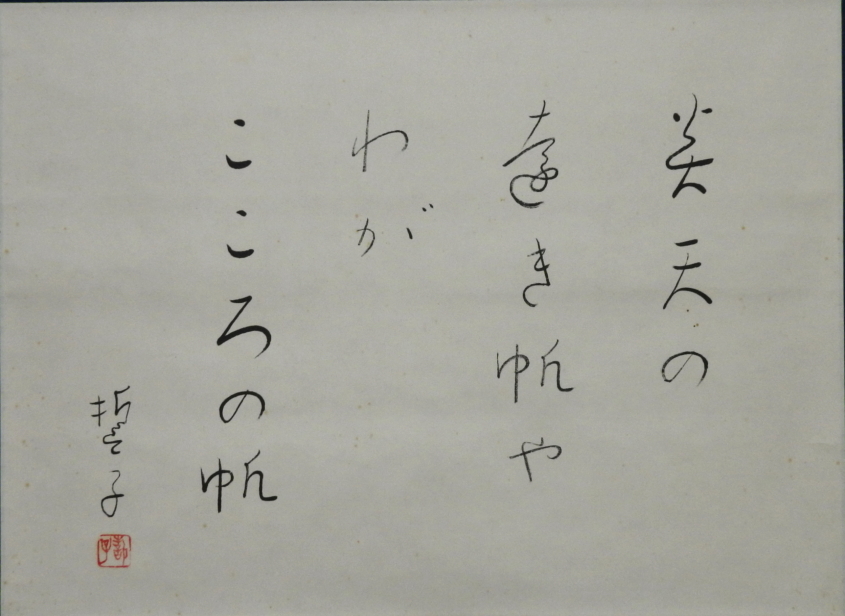 炎天の
遠き帆や
わが
こころの帆
誓子